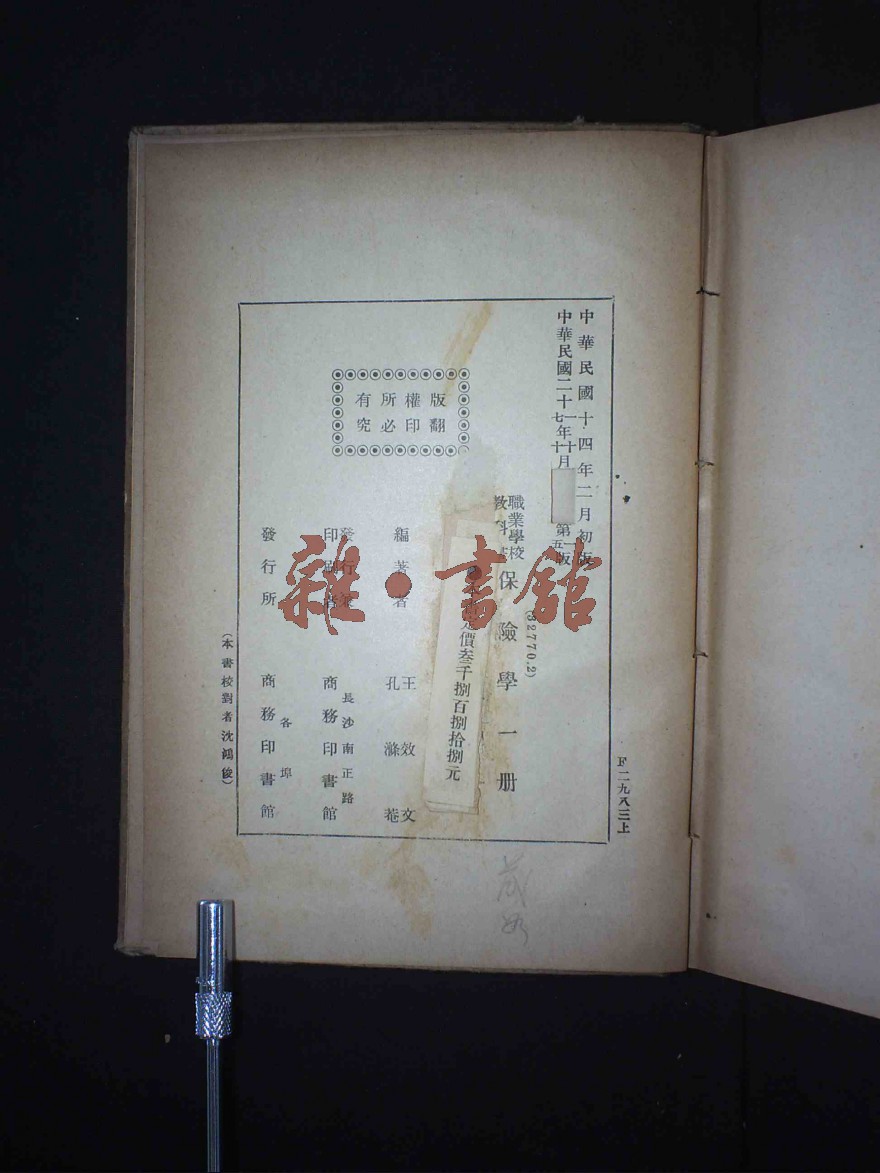 中華民國十四年二月初版
中華民國二十七年十一月
第五版
職業學校
教科書
保險學一册
(32770.2)
定價叁千捌百捌拾捌元
版權所有
翻印必究
編著者
王效文
孔滌菴
發行兼
印刷者
長沙南正路
商務印書館
發行所
各埠
商務印書館
(本書校對者沈鴻俊)
F二九八三上
雜·書館